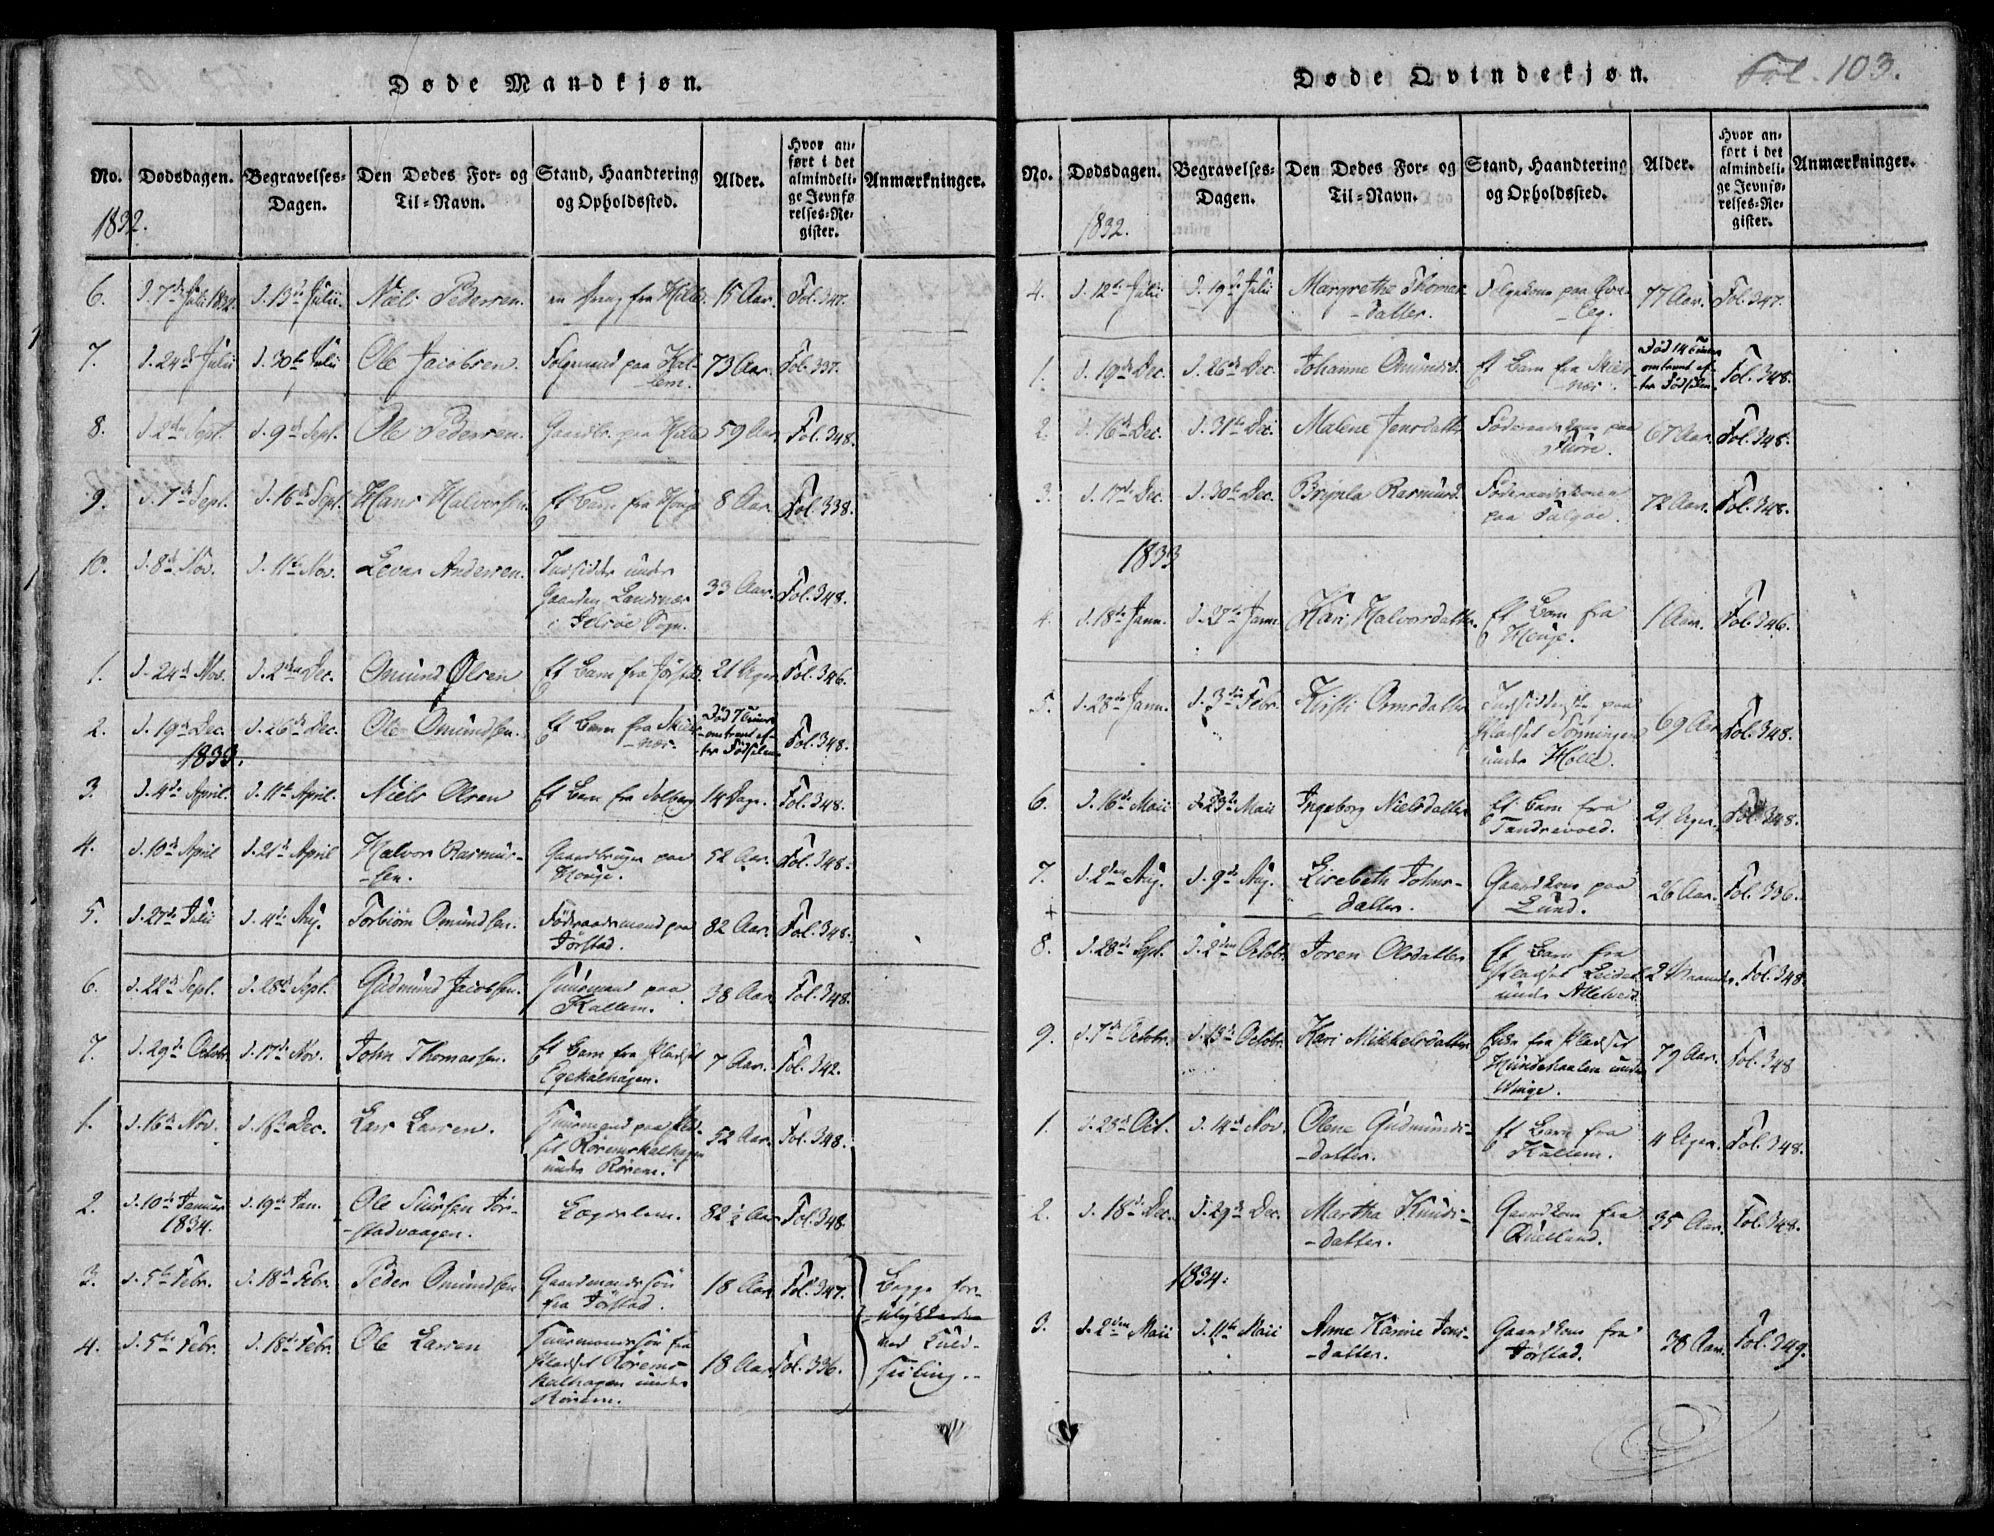 Døde Mandkjøn.
No. Dødsdagen. Begravelses-Dagen. Den Dødes For- og Til-Navn. Stand, Haandtering og Opholdssted. Alder. Hvor anført i det almindelige Jevnførelses-Register. Anmærkninger.
1832.
6. d. 7de Julii 1832. d. 13de Julii. Niels Pedersen. en Dreng fra Hille 15 Aar. Fol. 347.
7. d. 24de Julii d. 30te Julii Ole Jacobsen. Folgemand paa Kallem. 73 Aar. Fol. 337.
8. d. 2den Sept. d. 9de Sept. Ole Pedersen. Gaardbr. paa Hille 59 Aar Fol. 348.
9. d. 7de Sept. d. 16de Sept. Hans Halvorsen. Et Barn fra Houge 8 Aar. Fol. 338.
10. d. 8de Nov. d. 11te Nov. Levar Andersen. Indsidder under
Gaarden Landsnæs
i Sogn. 33 Aar. Fol. 348.
1. d. 24de Nov. d. 2den Dec. Omund Olsen Et Barn fra Jørstad 21 Uger Fol. 346.
2. d. 19de Dec. d. 26de Dec. Ole Omundsen. Et Barn fra Skiernæs. Død 7 Timer
omtrent efter
Fødselen Fol. 348.
1833.
3. d. 4de April. d. 11te April. Niels Olsen Et Barn fra Solberg 14 Dage. Fol. 348.
4. d. 10de April d. 21de April Halvor Rasmus-
-sen. Gaardbruger paa
Houge. 52 Aar. Fol. 348.
5. d. 27de Julii d. 4de Aug. Torbiørn Omundsen. Føderaadsmand paa
Jørstad. 82 Aar. Fol. 348.
6. d. 22de Sept. d. 28de Sept. Gudmund Jacobsen. Huusmand paa
Kallem. 38 Aar Fol. 348.
7. d. 29de Octobr. d. 17de Nov. John Thomassen. Et Barn fra Pladset
Egekalhagen. 7 Aar. Fol. 342.
1. d. 16de Nov. d. 18de Dec. Lars Larsen. Huusmand paa Plad-
set Røremskalhagen
under Rørem. 52 Aar. Fol. 348.
2. d. 10de Januar
1834. d. 19de Jan. Ole Siursen Jør-
-stadvaagen. Lægdslem. 82 ½ Aar Fol. 348
3. d. 5te Febr. d. 18de Febr. Peder Omundsen Gaardmandssøn
fra Jørstad. 18 Aar Fol. 347.
4. d. 5te Febr. d. 18de Febr. Ole Larsen Huusmandssøn fra
Pladset Rørems-
kalhagen under
Rørem. 18 Aar. Fol. 336.
Begge for-
ulykkede
ved Kuld-
seiling.
Døde Qvindekjøn.
Fol. 103.
No. Dødsdagen. Begravelses-Dagen. Den Dødes For- og Til-Navn. Stand, Haandtering og Opholdssted. Alder. Hvor anført i det almindelige Jevnførelses-Register. Anmærkninger.
1832.
4. d. 12te Julii d. 19de Julii Margrethe Thomas
-datter. Folgekone paa 77 Aar. Fol. 347.
1. d. 19de Dec. d. 26de Dec. Johanne Omundsd. Et Barn fra Skiernæs. Død 14 Timer
omtrent efter
Fødselen. Fol. 348.
2. d. 16de Dec. d. 31te Dec. Malene Jensdatter Føderaadskone paa
Fuøre. 67 Aar. Fol. 348.
3. d. 17de Dec. d. 30te Dec. Brynla Rasmusd. Føderaadskone
paa Talgøe. 72 Aar. Fol. 348.
1833
4. d. 18de Jann. d. 27de Jann. Kari Halvorsdatter. Et Barn fra
Houge. 1 Aar. Fol. 346.
5. d. 28de Jann. d. 3die Febr. Kristi Ormsdatter Indsidderske paa
Pladset Tønningen
under Hole. 69 Aar Fol. 348.
6. d. 16de Maii d. 23de Maii Ingeborg Nielsdatter Et Barn fra
Tandrevold. 21 Uger. Fol. 348.
7. d. 2den Aug. d. 9de Aug. Lisebeth Johns-
-datter. Gaardkone paa
Lund. 26 Aar. Fol. 336.
8. d. 28de Sept. d. 2den Octobr. Joren Olsdatter Et Barn fra
Pladset Leidet
under 2 Maaneder. Fol. 348.
9. d. 7de Octobr. d. 13de Octobr. Kari Mikkelsdatter Enke fra Pladset
Hundehaalen under
Winge. 79 Aar. Fol. 348
1. d. 28de Oct. d. 14de Nov. Olene Gudmunds-
-datter. Et Barn fra
Kallem. 11 Uger. Fol. 348.
2. d. 18de Dec. d. 29de Dec. Martha Knuds-
-datter. Gaardkone fra
35 Aar. Fol. 348.
1834.
3. d. 2den Maii d. 11te Maii Anne Karine Jens-
-datter. Gaardkone fra
Jørstad. 38 Aar. Fol. 349.